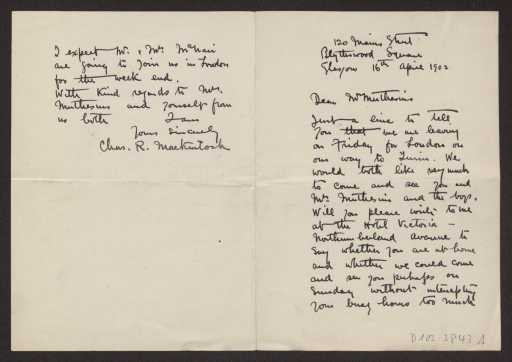 120 Mains Street
Blythswood Square
Glasgow 16th April 1902
Dear Mr Muthesius
Just a line to tell
you that we are leaving
on Friday for London on
our way to Turin. We
would both like very much
to come and see you and
Mrs Muthesius and the boys.
Will you please write to me
at the Hotel Victoria –
Northumberland Avenue to
say whether you are at home
and whether we could come
and see you perhaps on
Sunday without interrupting
your busy hours too much
I expect Mr. & Mrs McNair
are going to join us in London
for the week end.
With kind regards to Mrs.
Muthesius and yourself from
us both I am
Yours Sincerely
Chas. R. Mackintosh
D 102-3843